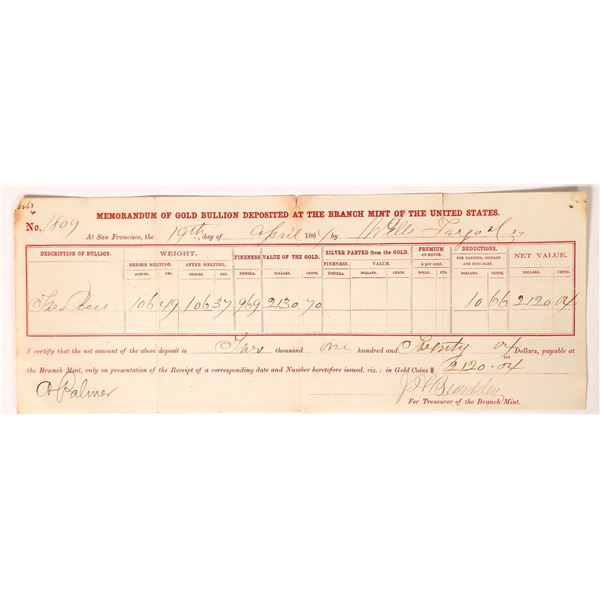 MEMORANDUM OF GOLD BULLION DEPOSITED AT THE BRANCH MINT OF THE UNITED STATES.
No. 1809
At San Francisco, the 19th day of April 186 by Wells Fargo & Co
DESCRIPTION OF BULLION. WEIGHT. FINENESS VALUE OF THE GOLD. SILVER PARTED from the GOLD. PREMIUM ON SILVER. DEDUCTIONS. NET VALUE.
BEFORE MELTING. AFTER MELTING. FINENESS. VALUE. ¼ per cent. FOR PARTING, COINAGE AND FINE BARS.
OUNCES. DEC. OUNCES. DEC. 1000ths. DOLLARS. CENTS. 1000ths. DOLLARS. CENTS. DOLLS. CTS. DOLLARS. CENTS. DOLLARS. CENTS.
106 49 106 37 969 2130 70 10 66 2120 04
I certify that the net amount of the above deposit is Two thousand one hundred and Twenty 04 Dollars, payable at
the Branch Mint, only on presentation of the Receipt of a corresponding date and Number heretofore issued, viz.: in Gold Coins $ 2120.04
Palmer
For Treasurer of the Branch Mint.